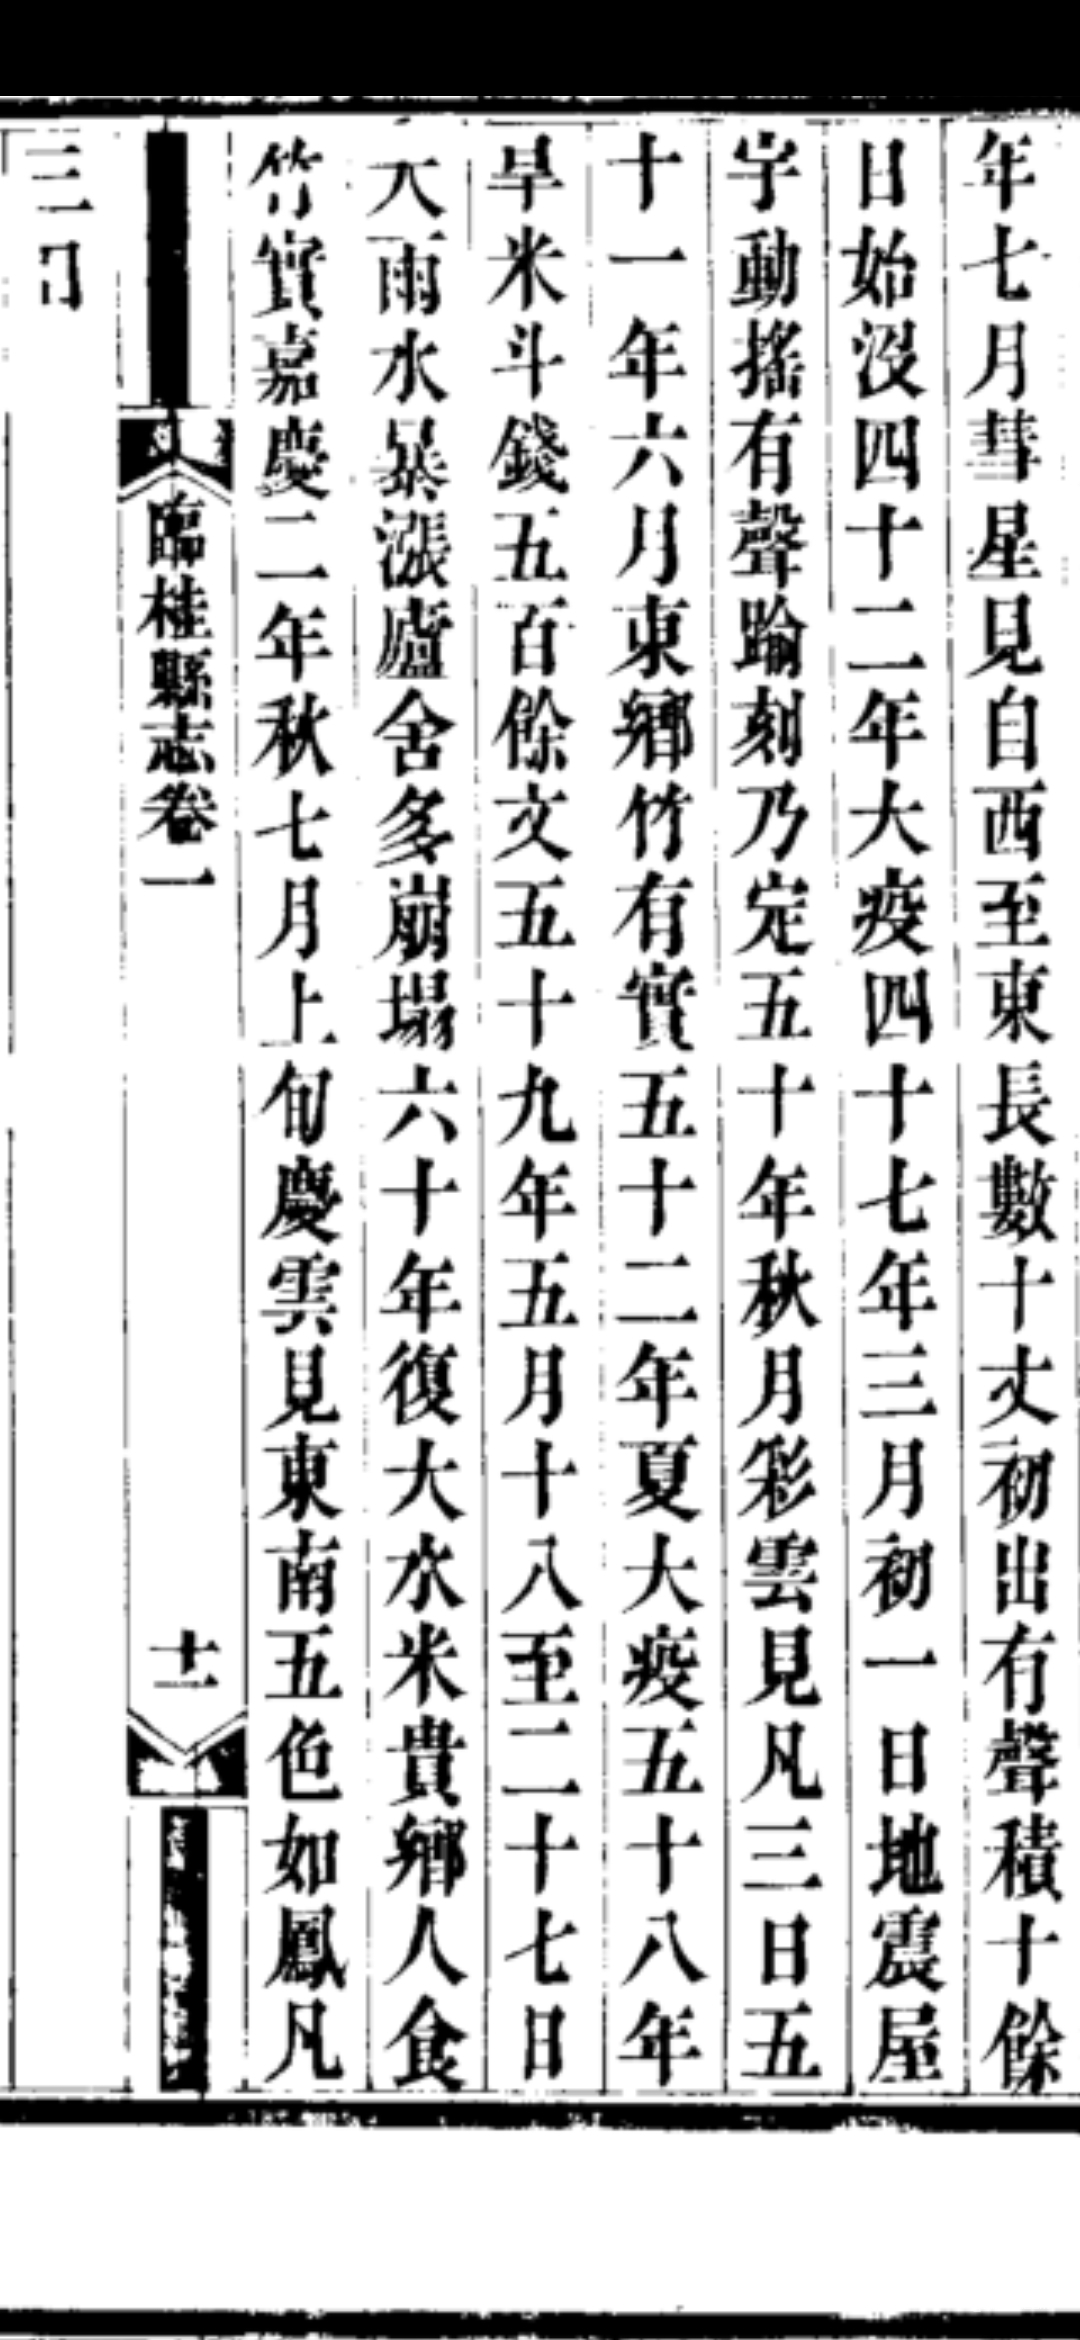 年七月彗星見自西至東長數十丈初出有聲積十餘
日始沒四十二年大疫四十七年三月初一日地震屋
宇動搖有聲踰刻乃定五十年秋月彩雲見凡三日五
十一年六月東鄉竹有實五十二年夏大疫五十八年
旱米斗錢五百餘文五十九年五月十八至二十七日
大雨水暴漲廬舍多崩塌六十年復大水米貴鄉人食
竹實嘉慶二年秋七月上旬慶雲見東南五色如鳳凡
臨桂縣志卷一
十二
三日